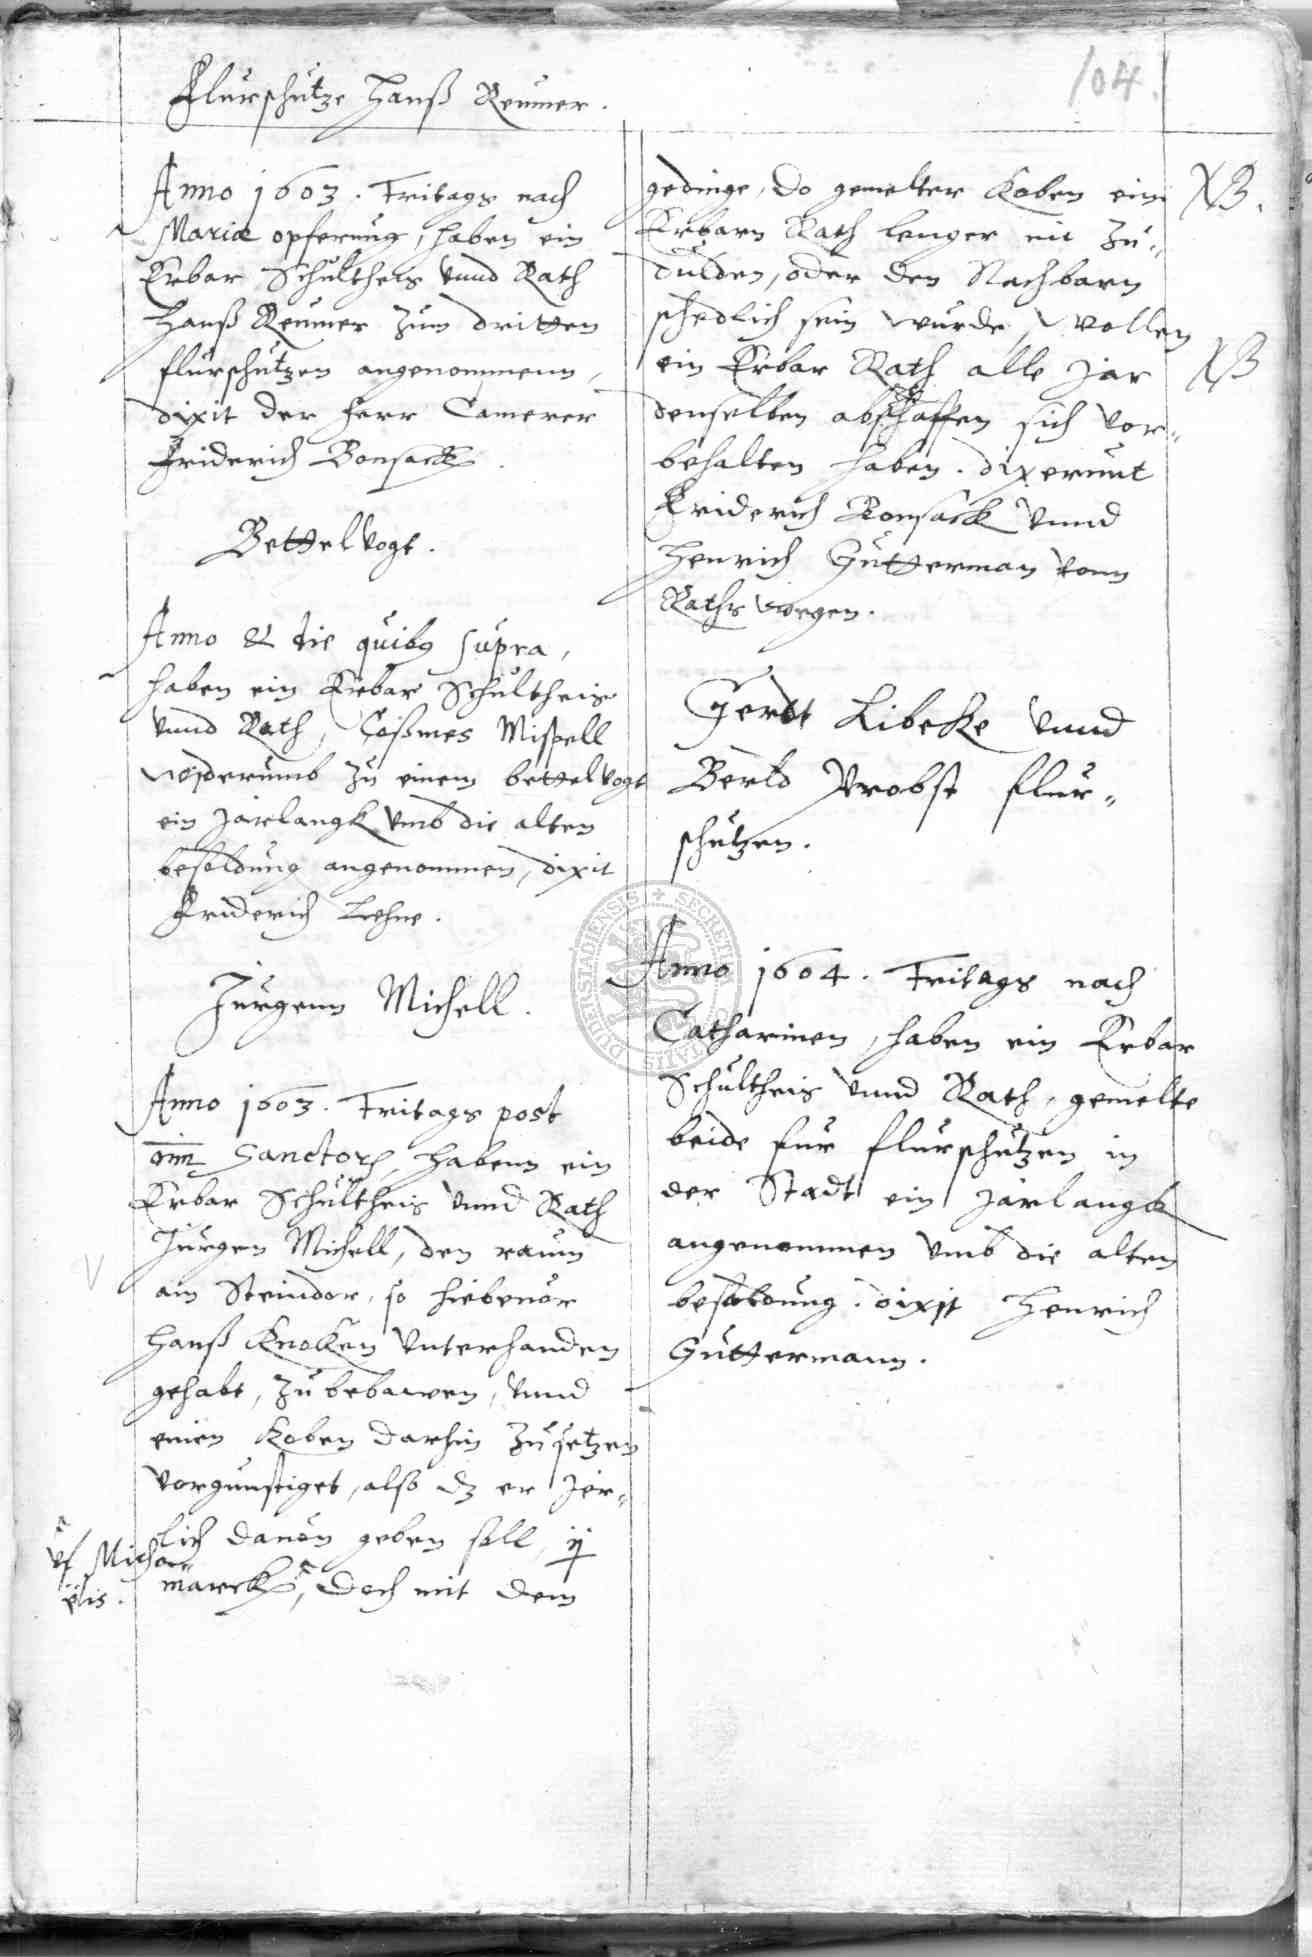 104.
Flurschutze Hanß Reumer.
Anno 1603. Fritags nach
Mariæ opferung, haben ein
Erbar Schultheis vnnd Rath
Hanß Reumer zum dritten
flurschutzen angenommenn,
dixit der Herr Camerer
Friderich Bonsack.
Bettelvogt.
Anno & die quibus supra,
haben ein Erbar Schultheis
vnnd Rath, Coßmes Missell
widerumb zu einem bettelvogt
ein jarlangk vmb die alten
besoldung angenommen, dixit
Friderich Lehne.
Jurgenn Michell.
Anno 1603. Fritags post
oim Sanctorum, habenn ein
Erbar Schultheis vnnd Rath
Jurgen Michell, den raum
am Steindor, so hiebenor
Hanß Knoken vnterhanden
gehabt, zu bebawen, vnnd
einen Koben darhin zusetzen
vorgunstiget, also dz er jer-
lich danon geben soll, ij
marck, doch mit dem
vf Mich
elis.
gedinge, do gemelter Koben eim
Erbarn Rath lenger nit zu-
dulden, oder den Nachbarn
schedlich sein wurde, wollen
ein Erbar Rath alle jar
denselben abschaffen sich vor-
behalten haben. dixerunt
Friderich Bonsack vnnd
Henrich Gutterman vonn
Raths wegen.
NB.
NB
Gerdt Libeke vnnd
Berld Probst flur-
schutzen.
Anno 1604. Fritags nach
Catharinen, haben ein Erbar
Schultheis vnnd Rath, gemelte
beide fur flurschutzen in
der Stadt ein jarlangk
angenommen vmb die alten
besoldung. dixit Henrich
Guttermann.
SECRETUM CIVITATIS DUDERSTADIENSIS